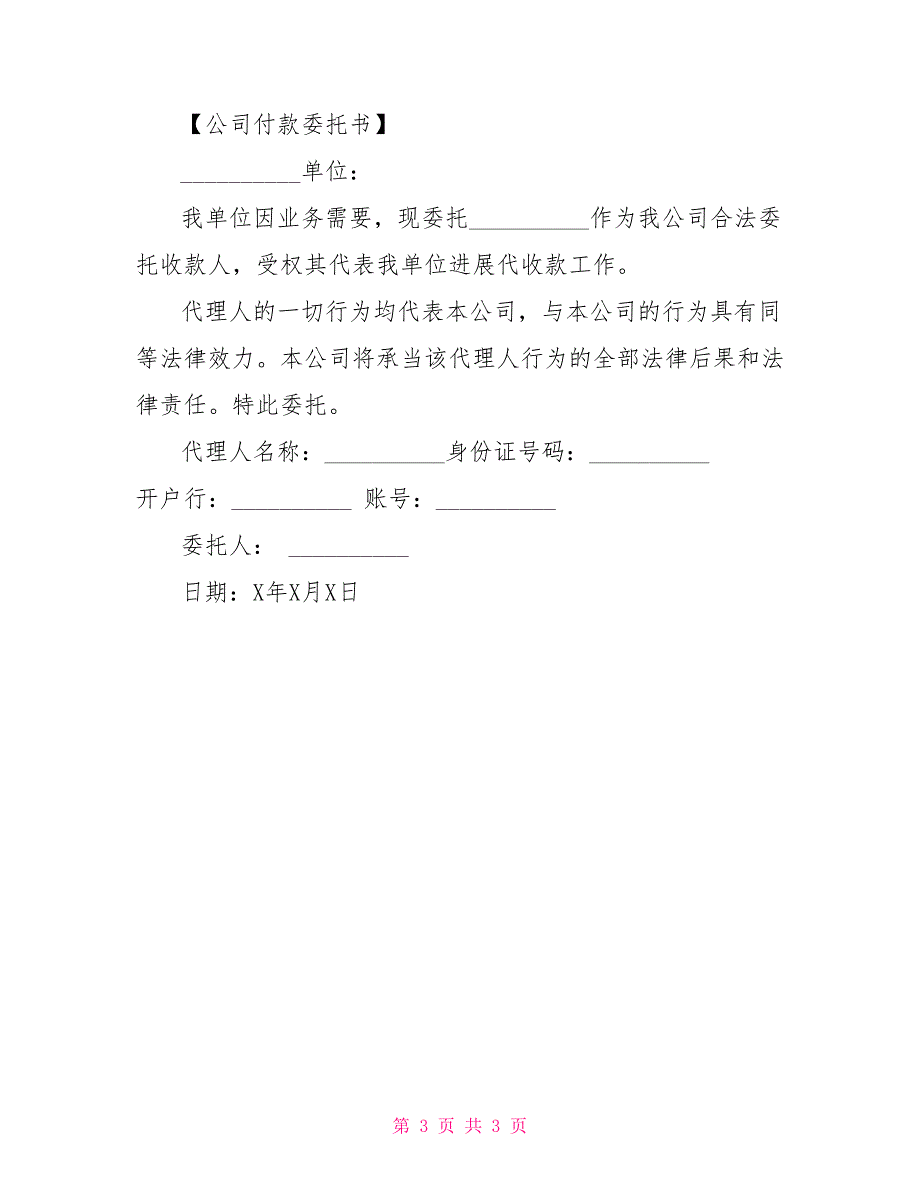 【公司付款委托书】
__________单位：
我单位因业务需要，现委托__________作为我公司合法委
托收款人，受权其代表我单位进展代收款工作。
代理人的一切行为均代表本公司，与本公司的行为具有同
等法律效力。本公司将承当该代理人行为的全部法律后果和法
律责任。特此委托。
代理人名称：__________身份证号码：__________
开户行：__________ 账号：__________
委托人： __________
日期：X年X月X日
第 3 页 共 3 页